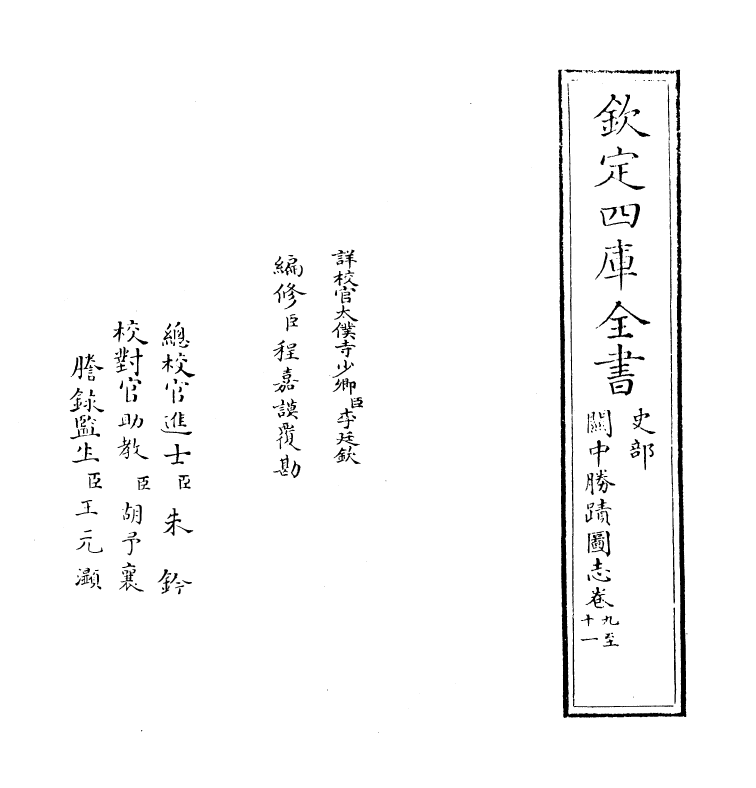 欽定四庫全書
史部
關中勝蹟圖志卷九至十一
詳校官太僕寺少卿臣李廷欽
編修臣程嘉謨覆勘
總校官進士臣朱鈐
校對官助教臣胡予襄
謄錄監生臣王元灝